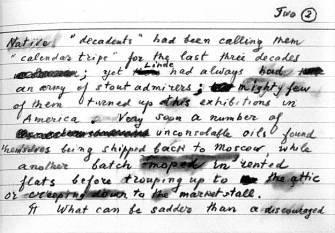 Two 2
Native "decadents" had been calling them
"calendar tripe" for the last three decades
; yet Linde had always had
an army of stout admirers; mighty few
of them turned up at his exhibitions in
America. Very soon a number of
unconsolable oils found
themselves being shipped back to Moscow, while
another batch moped in rented
flats before trouping up to the attic
or creeping down to the market-stall.
¶ What can be sadder than a discouraged